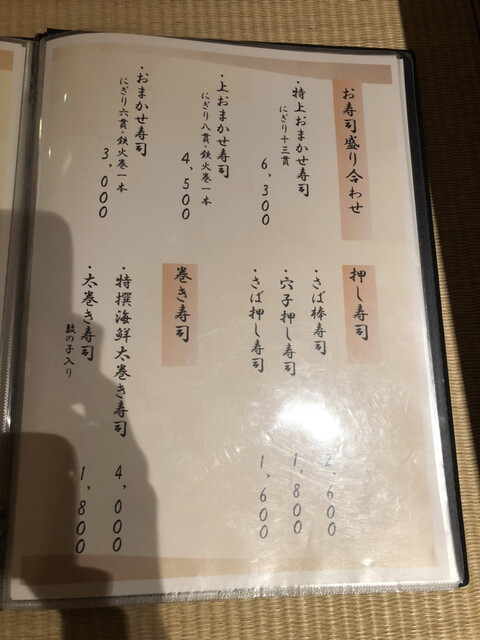 お寿司盛り合わせ
・特上おまかせ寿司
にぎり十三貫
6,300
・上おまかせ寿司
にぎり八貫・鉄火巻一本
4,500
・おまかせ寿司
にぎり六貫・鉄火巻一本
3,000
押し寿司
・さば棒寿司
2,600
・穴子押し寿司
1,800
・さば押し寿司
1,600
巻き寿司
・特撰海鮮太巻き寿司
4,000
・太巻き寿司
数の子入り
1,800